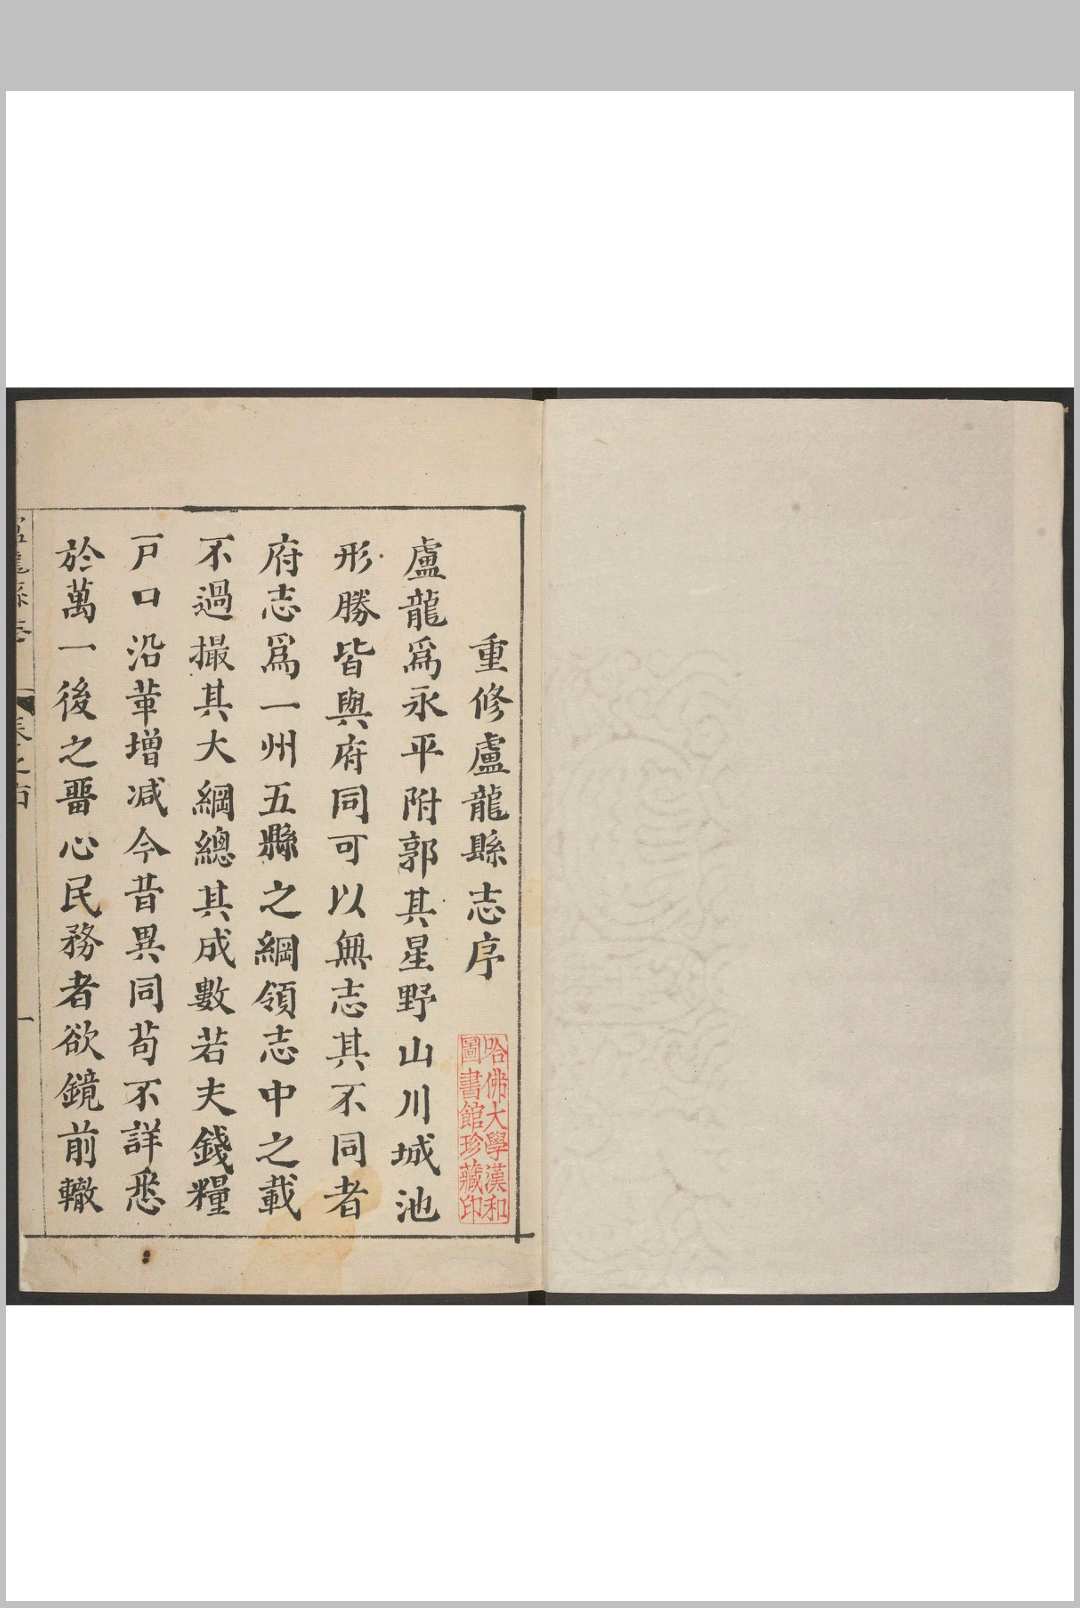 重修盧龍縣志序
哈佛大學漢和
圖書館珍藏印
盧龍爲永平附郭其星野山川城池
形勝皆與府同可以無志其不同者
府志爲一州五縣之綱領志中之載
不過撮其大綱總其成數若夫錢糧
戸口沿革增減今昔異同苟不詳悉
於萬一後之畱心民務者欲鏡前轍